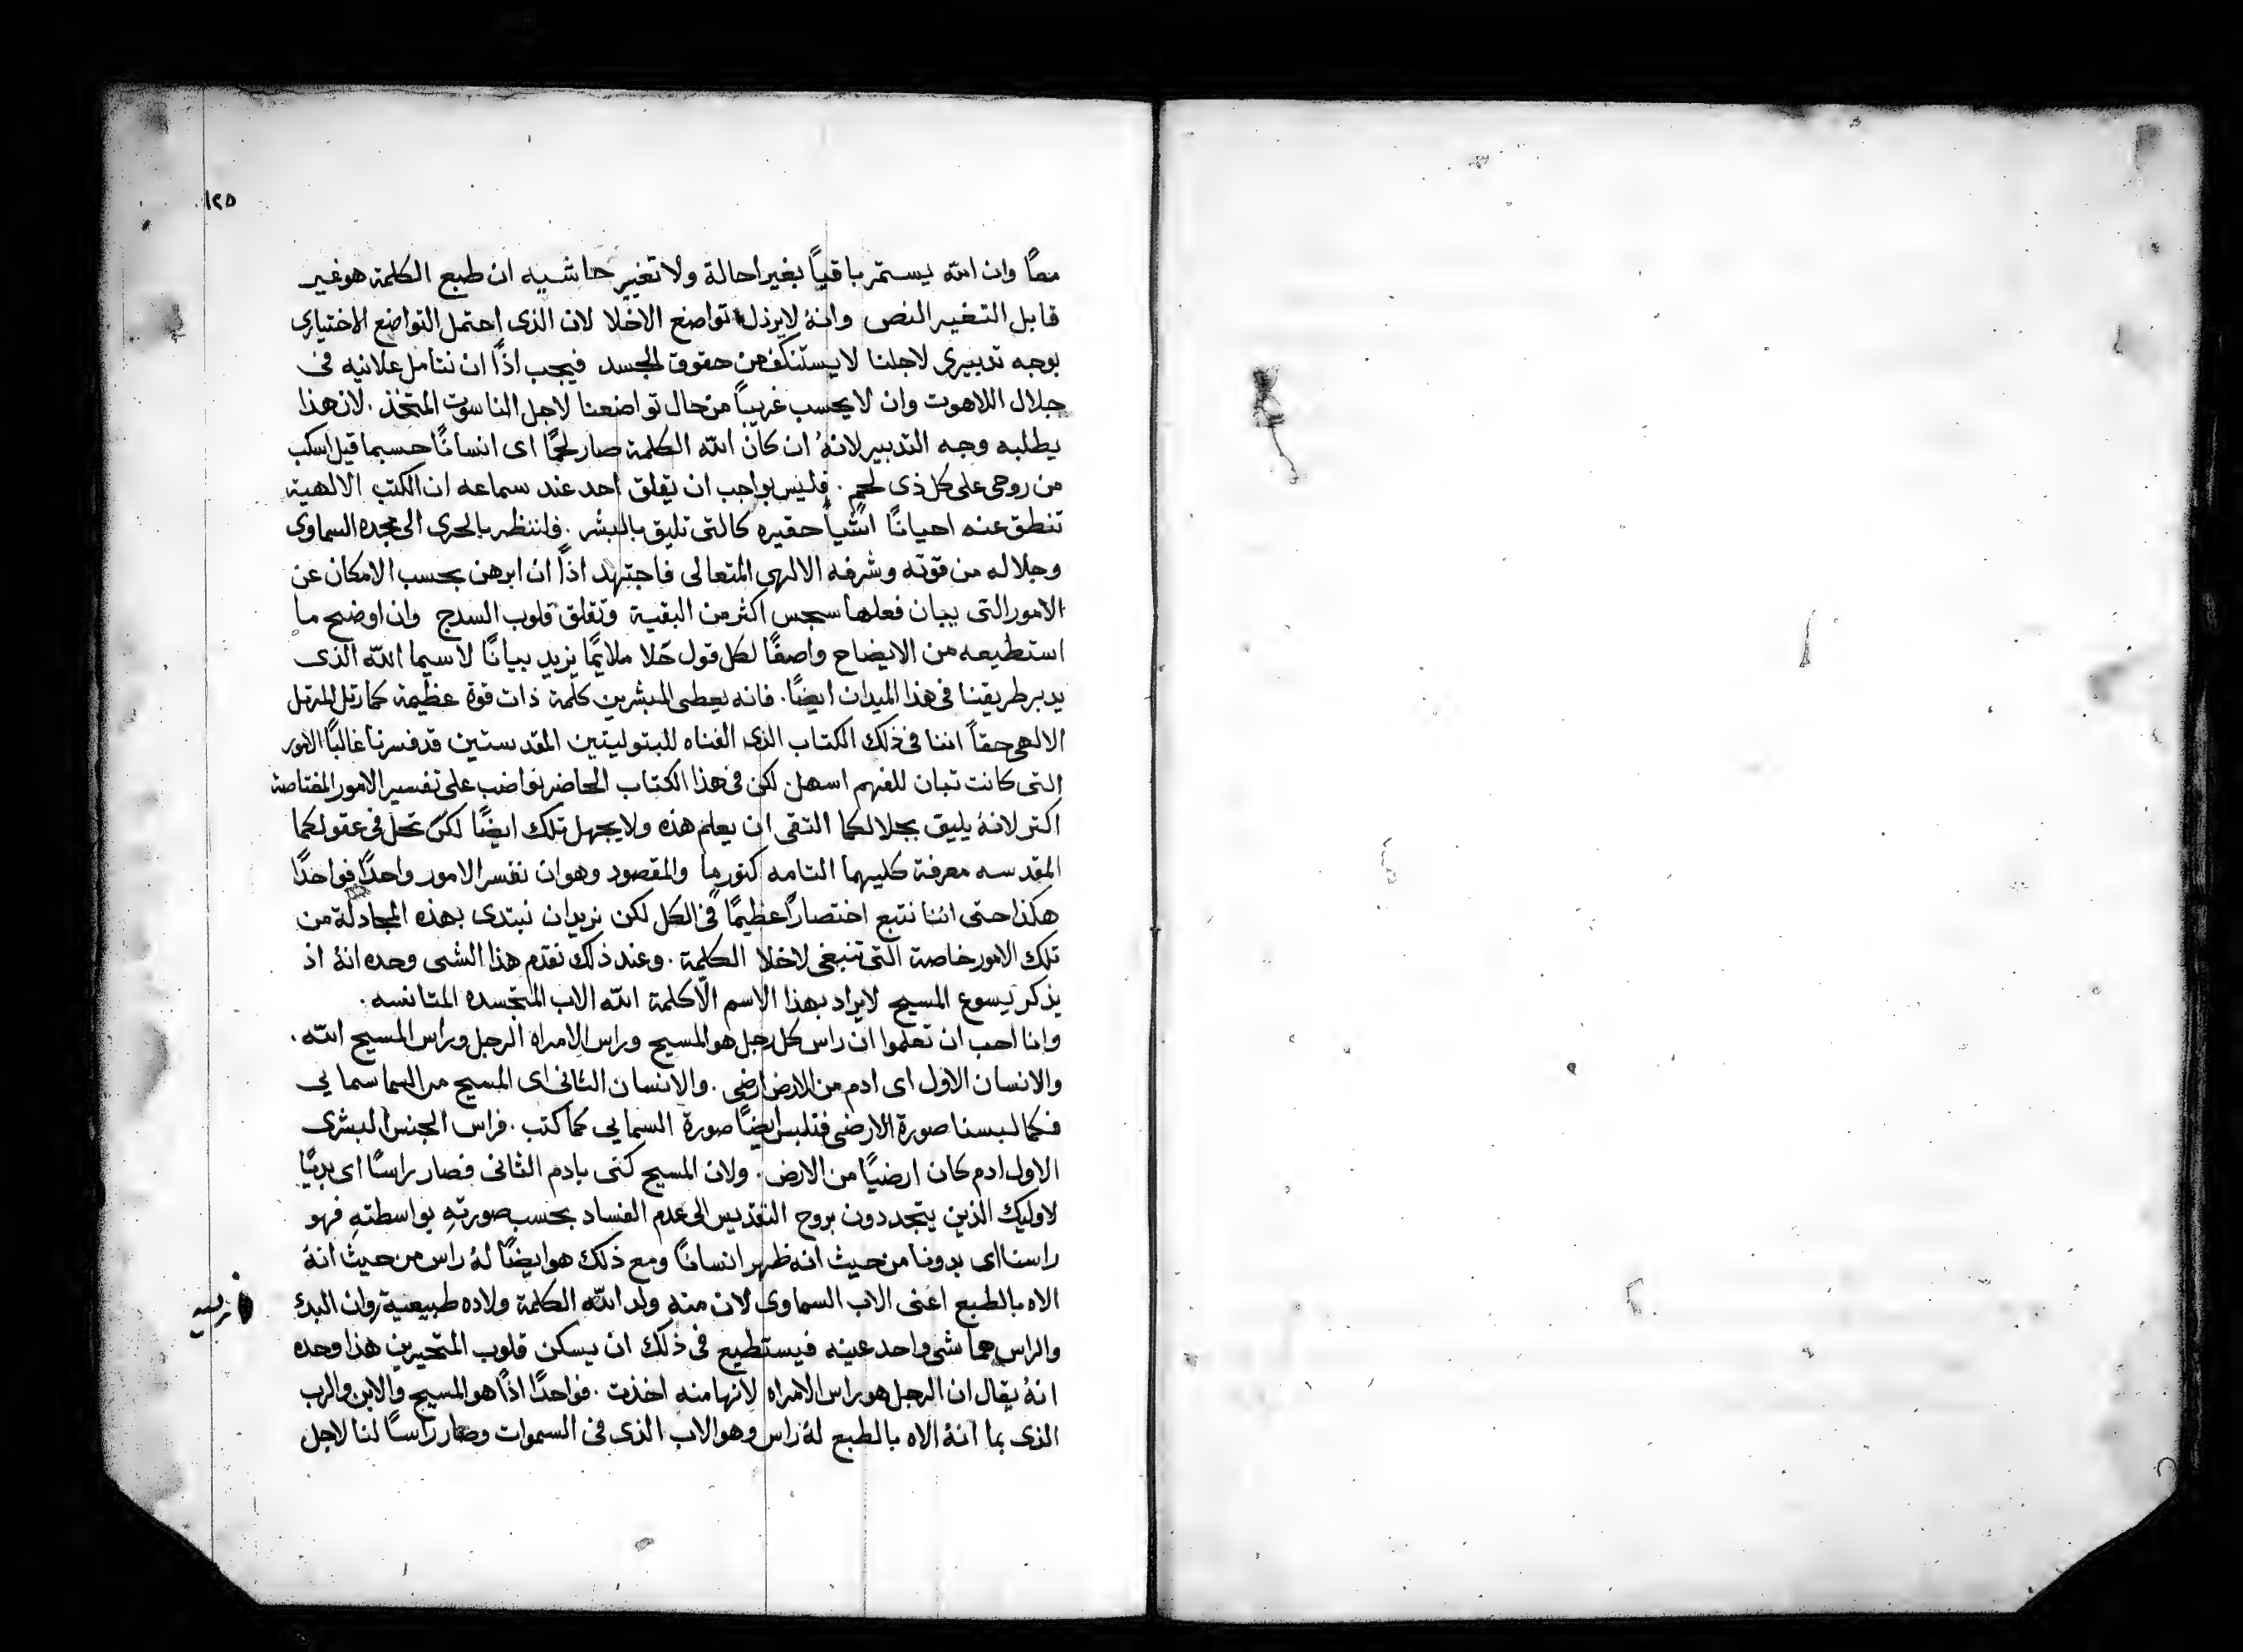 ١٢٥
معًا وان الله يستمر باقيًا بغير احالة ولا تغيير حاشيه ان طبع الكلمة هو غير
قابل التغيير النص وانهُ لا يرذل تواضع الاخلا لان الذى احتمل التواضع الاختيارى
بوجه تدبيرى لاجلنا لا يستنكف من حقوق الجسد فيجب اذًا ان نتامل علانيه فى
جلال اللاهوت وان لا يحسب غريبًا من حال تواضعنا لاجل الناسوت المتخذ . لان هذا
يطلبه وجه التدبير لانهُ ان كان الله الكلمة صار لحمًا اى انسانًا حسبما قيل اسكب
من روحى على كل ذى لحم . فليس بواجب ان يقلق احد عند سماعه ان الكتب الالهية
تنطق عنه احيانًا اشيأ حقيره كالتى تليق بالبشر . فلننظر بالحرى الى مجده السماوى
وجلاله من قوته وشرفه الالهى المتعالى فاجتهد اذًا ان ابرهن بحسب الامكان عن
الامور التى يبان فعلها سجس اكثر من البقية وتقلق قلوب السدج وان اوضح ما
استطيعه من الايضاح واصفًا لكل قول حلا ملايمًا يزيد بيانًا لاسيما الله الذى
يدبر طريقنا فى هذا الميدان ايضًا . فانه يعطى المبشرين كلمة ذات قوة عظيمة كما رتل المرتل
الالهى حقاً اننا فى ذلك الكتاب الذى الفناه للبتوليتين المقدستين قد فسرنا غالبًا الامور
التى كانت تبان للفهم اسهل لكن فى هذا الكتاب الحاضر نواضب على تفسير الامور المغتاصة
اكتر لانهُ يليق بجلالكما التقى ان يعلم هذه ولا يجهل تلك ايضًا لكى تحل فى عقولكما
المقدسه معرفة كليهما التامه كنور ما والمقصود وهو ان نفسر الامور واحدًا فواحدًا
هكذا حتى اننا نتبع اختصارًا عظيمًا فى الكل لكن نريد ان نبتدى بهذه المجادلة من
تلك الامور خاصة التى تنبغى لاخلا الكلمة . وعند ذلك نقدم هذا الشى وحده انهُ اذ
يذكر يسوع المسيح لا يراد بهذا الاسم الّا كلمة الله الاب المتجسده المتانسه .
وانا احب ان تعلموا ان راس كل رجل هو المسيح وراس الامراه الرجل وراس المسيح الله .
والانسان الاول اى ادم من الارض ارضى . والانسان الثانى اى المسيح من السما سمايى
فكما لبسنا صورة الارضى فنلبس ايضًا صورة السمايى كما كتب . فراس الجنس البشرى
الاول ادم كان ارضيًا من الارض . ولان المسيح كنى بادم الثانى فصار راسًا اى بديًا
لاوليك الذين يتجددون بروح التقديس الى عدم الفساد بحسب صورتهِ بواسطتهِ فهو
راسنا اى بدونا من حيث انه ظهر انسانًا ومع ذلك هو ايضًا لهُ راس من حيث انهُ
الاه بالطبع اعنى الاب السماوى لان منه ولد الله الكلمة ولاده طبيعية وان البدء
والراس هما شى واحد عينه فيستطيع فى ذلك ان يسكن قلوب المتحيرين هذا وحده
انهُ يقال ان الرجل هو راس الامراه لانها منه اخذت . فواحدًا اذًا هو المسيح والابن والرب
الذى بما انهُ الاه بالطبع لهُ راس وهو الاب الذى فى السموات وصار راسًا لنا لاجل